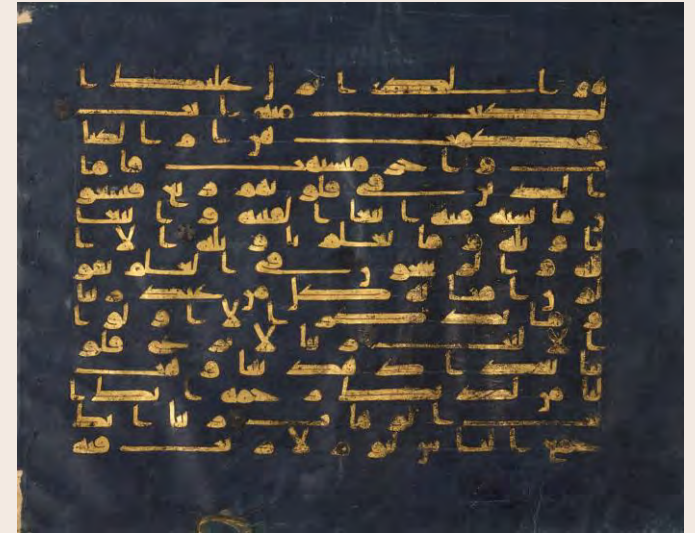 هو الذى انزل عليك ا
لكتب منه ايت
محكمت هن ام الكتـ
ـب واخر متشبهت فاما
الذين فى قلوبهم زيغ فيتبعو
ن ما تشبه منه ابتغا الفتنه وابتغا
تاويله وما يعلم تاويله الا ا
لله والرسخون فى العلم يقو
لون امنا به كل من عند ربنا
وما يذكر الا اولوا
الالبب ربنا لا تزغ قلو
بنا بعد اذ هديتنا وهب
لنا من لدنك رحمه انك ا
نت الوهاب ربنا انك
جمع الناس ليوم لا ريب فيه